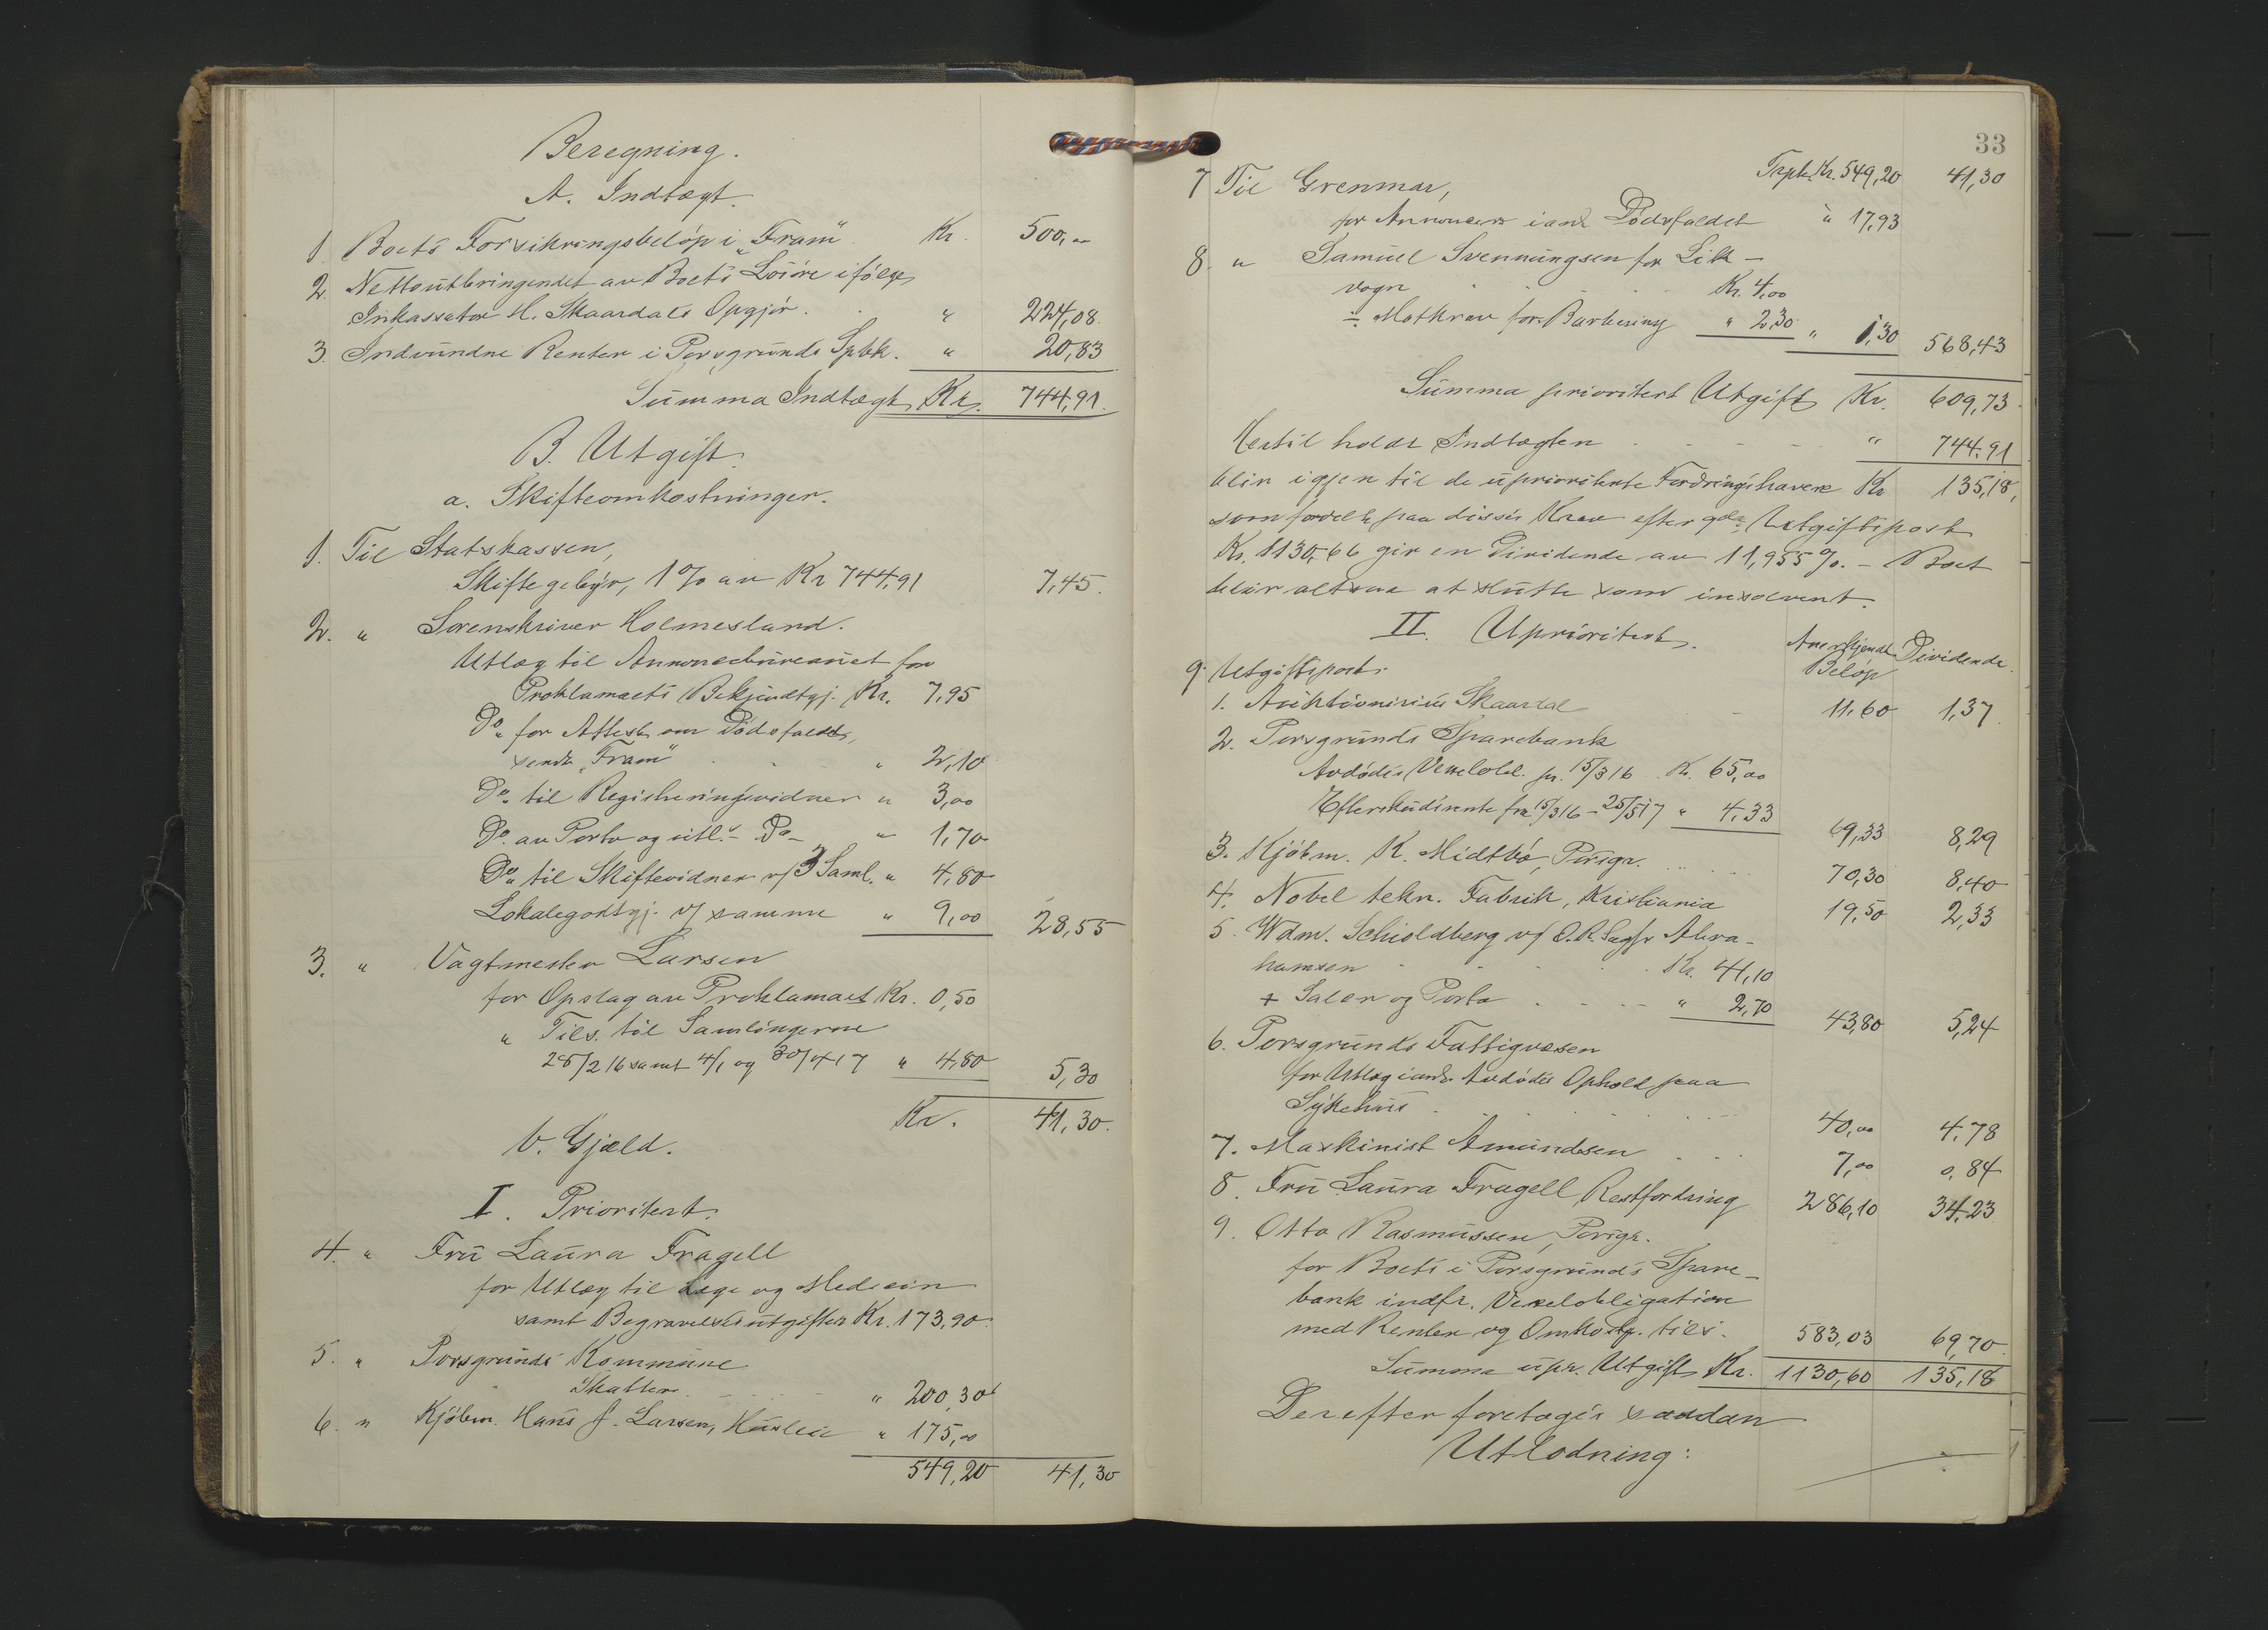 Beregning.
A. Indtægt.
1. Boets Forsikringsbeløp i „Fram" Kr. 500,00
2. Nettoutbringendet av Boets Løsøre ifølge
Inkassator H. Skaardals Opgjør. " 224,08.
3. Indvundne Renter i Porsgrunds Spbk. " 20,83
Summa Indtægt Kr. 744,91.
B. Utgift.
a. Skifteomkostninger.
1. Til Statskassen,
Skiftegebyr, 1% av Kr 744,91 7,45.
2. " Sorenskriver Holmesland.
Utlæg til Annoncebureauet for
Proklamaets Bekjendtgj. Kr. 7,95
Do. for Attest om Dødsfaldet,
sendt „Fram" " 2,10
Do. til Registreringsvidner " 3,00
Do. av Porto og utl. - Do - " 1,70
Do. til Skiftevidner v/ 3 Saml. " 4,80
Lokalegodtgj. v/ samme " 9,00 28,55
3. " Vagtmester Larsen
for Opslag av Proklamaet Kr. 0,50
" Tils. til Samlingerne
28/2 16 samt 4/1 og 30/4 17 " 4,80 5,30
Kr. 41,30.
b. Gjæld.
I. Prioritert.
4. " Fru Laura Fragell
for Utlæg til Læge og Medicin
samt Begravelsesutgifter Kr. 173,90.
5. " Porsgrunds Kommune
Skatter " 200,30
6. " Kjøbm. Hans J. Larsen, Husleie " 175,00
549,20 41,30
33
Trpt. Kr. 549,20 41,30
7 Til Grenmar,
for Annoncer i anl. Dødsfaldet " 17,93
8. " Samuel Svenningsen for Lik-
vogn Kr. 4,00
÷ Motkrav for Barbering " 2,30 " 1,30 568,43
Summa prioritert Utgift Kr. 609,73.
Hertil holdt Indtægten " 744,91
blir igjen til de uprioriterte Fordringshavere Kr 135,18,
som fordelt paa disses Krav efter 9de Utgiftspost
Kr. 1130,66 gir en Dividende av 11,955%. - Boet
blir altsaa at slutte som insolvent.
II. Uprioritert. Anerkjendt Dividende.
9. Utgiftspost. Beløp
1. Auktionarius Skaardal 11.60 1,37
2. Porsgrunds Sparebank
Avdødes Vexelobl. pr. 15/3 16 Kr. 65,00
Efterskudsrente fra 15/3 16 - 25/5 17 " 4,33 69,33 8,29
3. Kjøbm. K. Midtbø, Porsgr. 70,30 8,40
4. Nobel tekn. Fabrik, Kristiania 19,50 2,33
5. Wdm. Schioldberg v/ O.R.Sagfr Abra-
hamsen Kr. 41,10
+ Salær og Porto " 2,70 43,80 5,24
6. Porsgrunds Fattigvæsen
for Utlæg i anl. Avdødes Ophold paa
Sykehus 40,00 4,78
7. Maskinist Amundsen 7,00 0,84
8. Fru Laura Fragell Restfordring 286,10 34,23
9. Otto Rasmussen, Porsgr.
for Boets i Porsgrunds Spare-
bank indfr. Vexelobligation
med Renter og Omkostg. tils. 583,03 69,70.
Summa upr. Utgift Kr. 1130,60 135,18
Derefter foretages saadan
Utlodning: